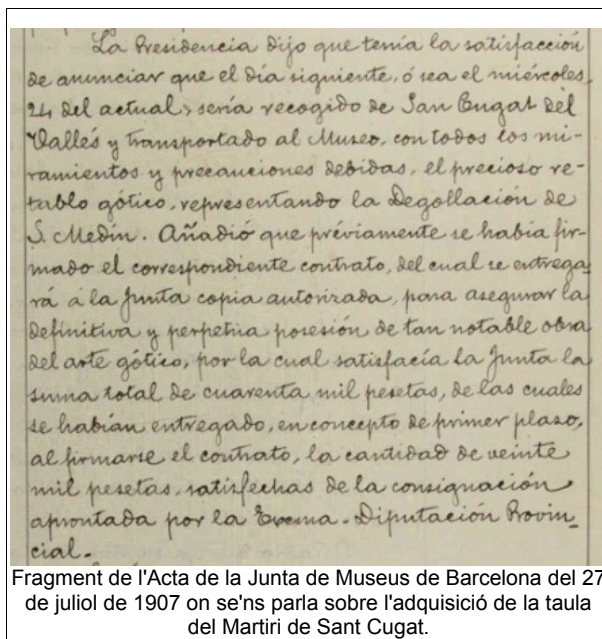 La Presidencia dijo que tenía la satisfacción
de anunciar que el día siguiente, ó sea el miércoles,
24 del actual, sería recogido de San Cugat del
Vallés y transportado al Museo, con todos los mi-
ramientos y precauciones debidas, el precioso re-
tablo gótico, representando la Degollación de
S. Medín. Añadió que préviamente se había fir-
mado el correspondiente contrato, del cual se entrega-
rá á la Junta copia autorizada, para asegurar la
definitiva y perpetua posesión de tan notable obra
del arte gótico, por la cual satisfacía la Junta la
suma total de cuarenta mil pesetas, de las cuales
se habían entregado, en concepto de primer plazo,
al firmarse el contrato, la cantidad de veinte
mil pesetas, satisfechas de la consignación
aprontada por la Excma. Diputación Provin-
cial.-
Fragment de l'Acta de la Junta de Museus de Barcelona del 27
de juliol de 1907 on se'ns parla sobre l'adquisició de la taula
del Martiri de Sant Cugat.